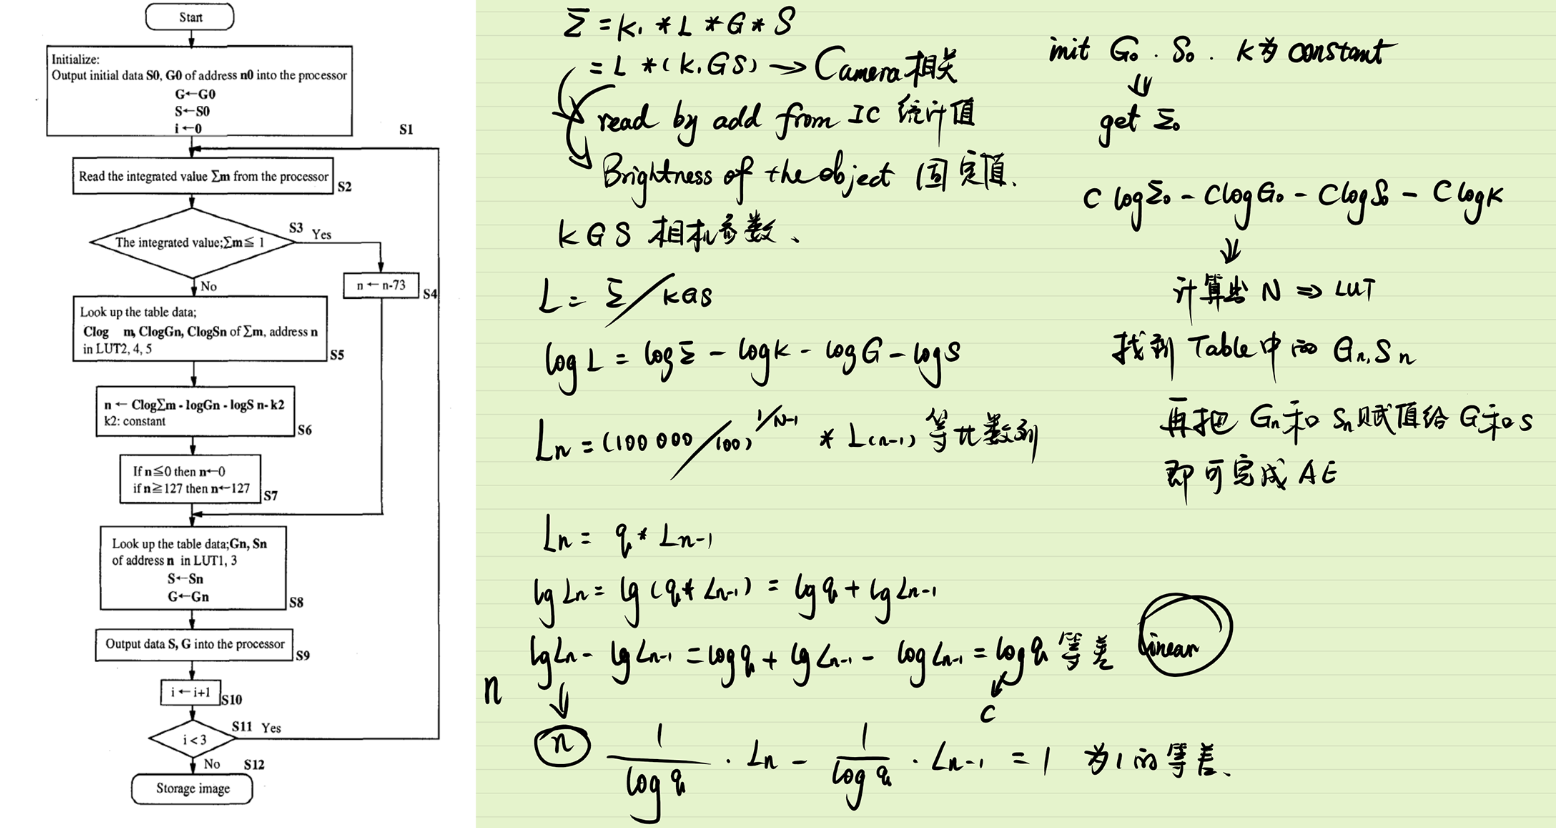 Start
Initialize:
Output initial data S0, G0 of address n0 into the processor
G←G0
S←S0
i←0
S1
Read the integrated value Σm from the processor
S2
The integrated value;Σm≦ 1
S3
Yes
No
n ← n-73
S4
Look up the table data;
Clog m, ClogGn, ClogSn of Σm, address n
in LUT2, 4, 5
S5
n ← ClogΣm - logGn - logS n- k2
k2: constant
S6
If n≦0 then n←0
if n≧127 then n←127
S7
Look up the table data;Gn, Sn
of address n in LUT1, 3
S←Sn
G←Gn
S8
Output data S, G into the processor
S9
i ← i+1
S10
i < 3
S11 Yes
No
S12
Storage image
Σ = K₁ * L * G * S
= L * (K₁GS) → Camera相关
read by add from IC 统计值
Brightness of the object 固定值.
KGS 相机参数、
L = Σ/KGS
log L = logΣ - logK - logG - logS
Ln = (100 000/100)^1/N-1 * L(n-1) 等比数列
Ln = q * Ln-1
lg Ln = lg (q * Ln-1) = lg q + lg Ln-1
lg Ln - lg Ln-1 = log q + lg Ln-1 - log Ln-1 = log q 等差
linear
C
n
n
1/log q · Ln - 1/log q · Ln-1 = 1 为1的等差.
init G₀ . S₀ . K为 constant
get Σ₀
C logΣ₀ - ClogG₀ - ClogS₀ - ClogK
计算出 N ⇒ LUT
找到 Table中的 Gn,Sn
再把 Gn和 Sn赋值给 G和S
即可完成 AE